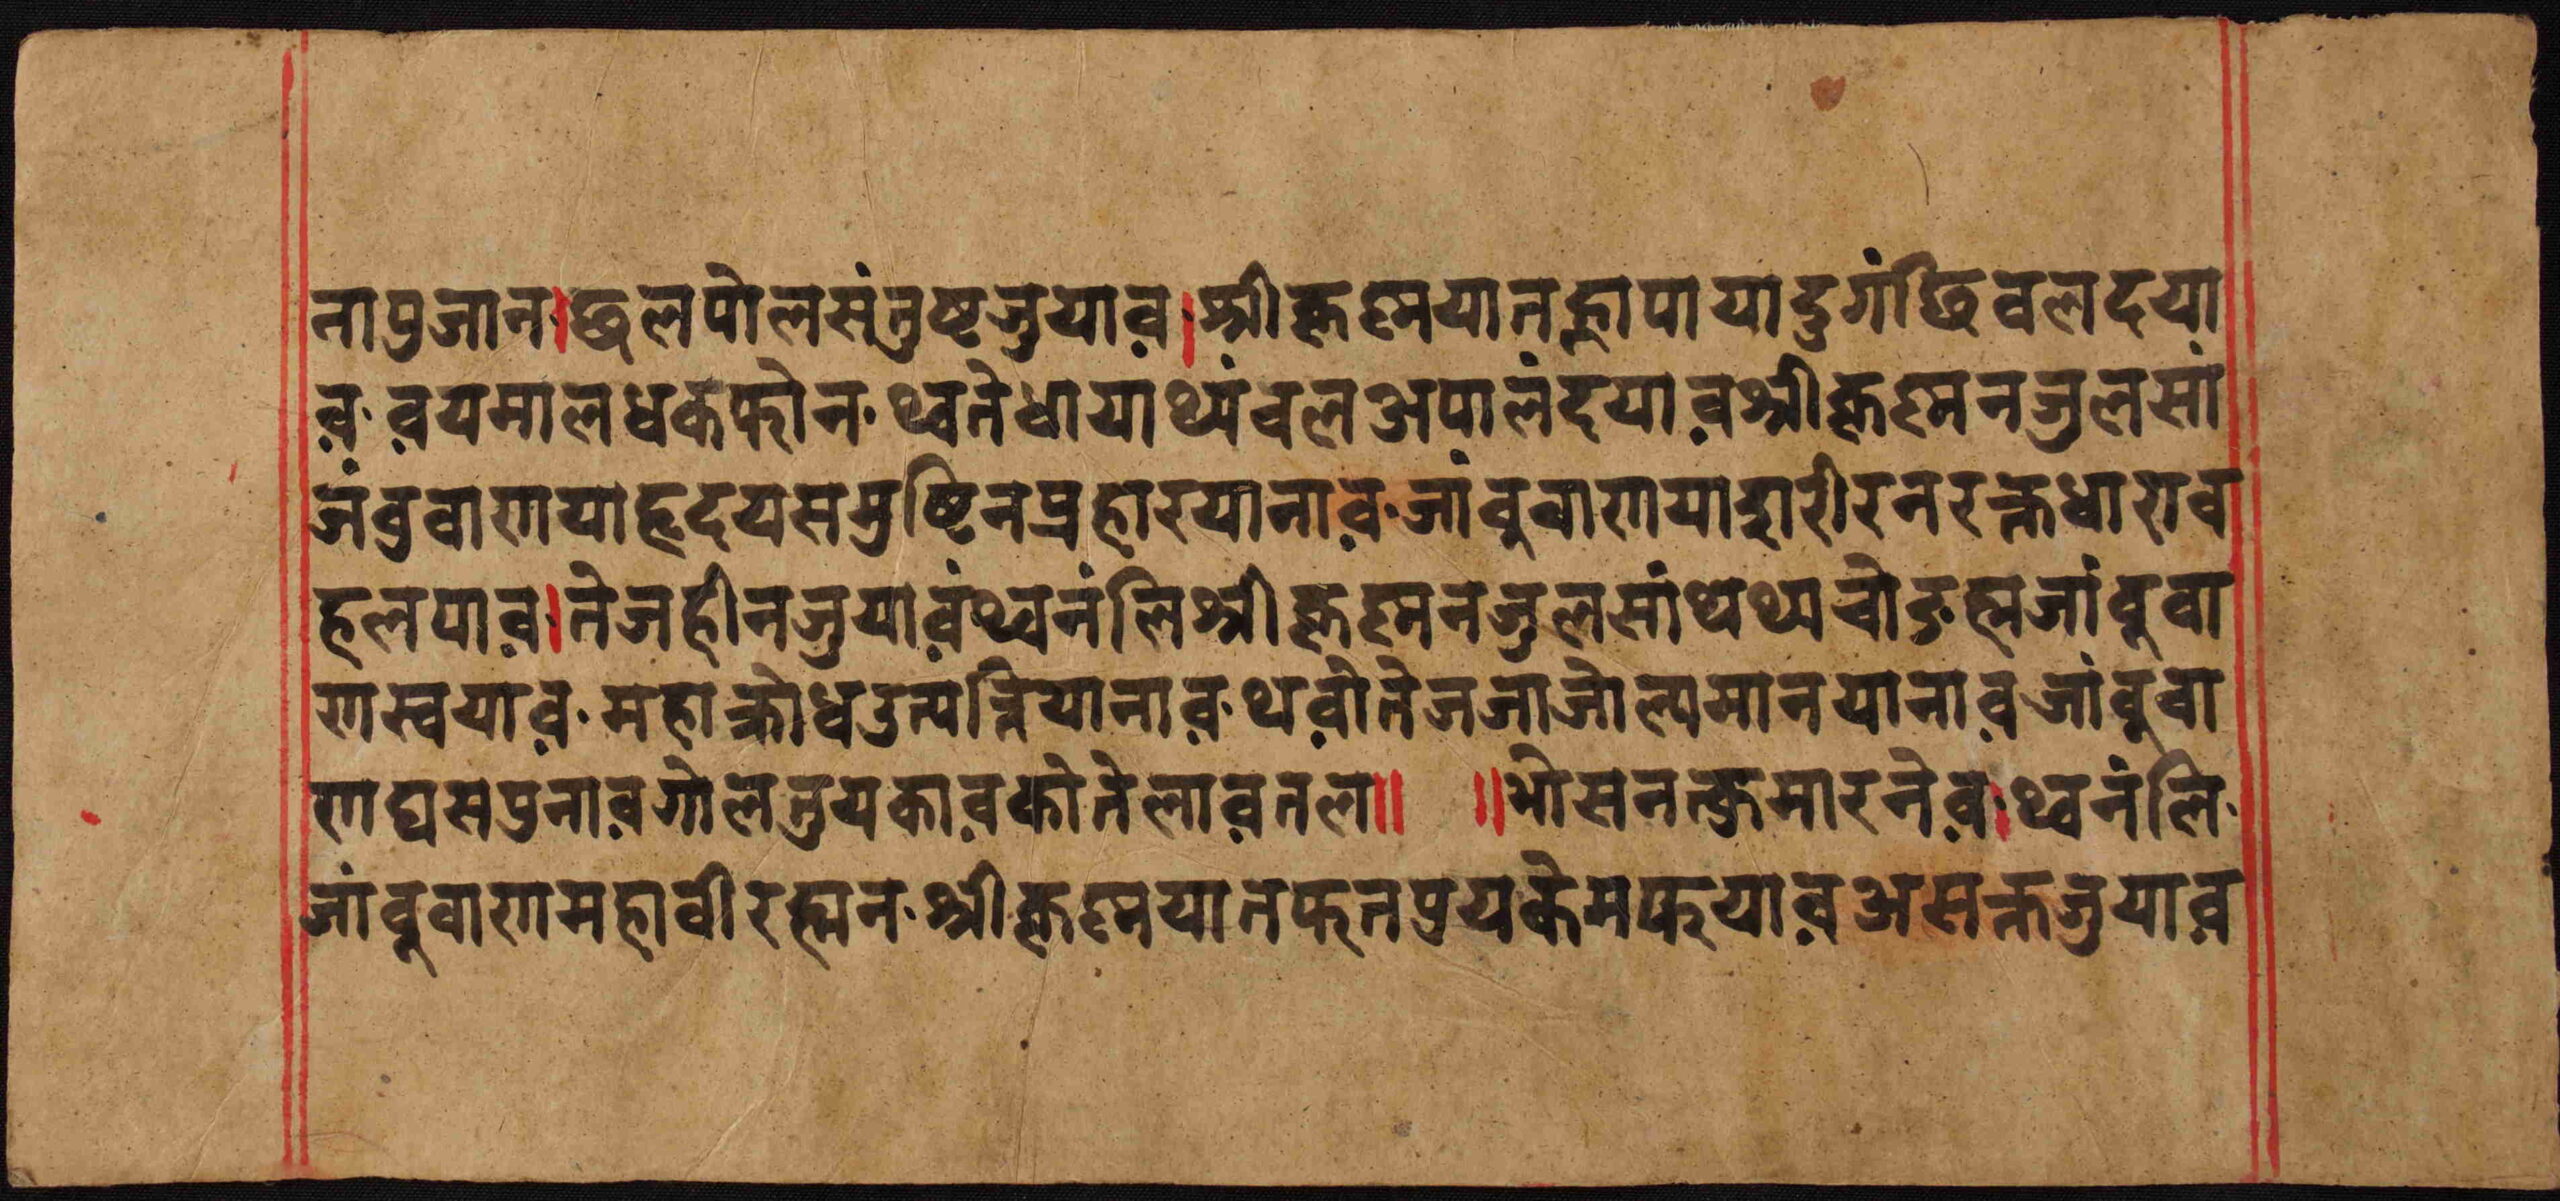 नापुजान।छलपोलसंतुष्टजुयाव़।श्रीकृष्णयातह्लापायादुगंछिवलदया
व़व़यमालधकफोनथ्वतेधायाथ्यंवलअपालंदयाव़श्रीकृष्णनजुलसां
जंवुवाणयाहृदयसमुष्टिनप्रहारयानाव़जांवुवाणयाशरीरनरक्तधाराव
हलपाव़।तेजहीनजुयाव़ंथ्वनंलिश्रीकृष्णनजुलसांथ्यथ्यचोङह्मजांवुवा
णस्वयाव़महाक्रोधउत्पन्नियानाव़थव़ोतेजजाजोल्यमानयानाव़जांवुवा
णद्यसपुनाव़गोलतुयकाव़कोतेलाव़तल॥ ॥भोसनत्कुमारनेव़।थ्वनंलि
जांवुवाणमहावीरह्मनश्रीकृष्णयातफुतपुयकेमफयाव़असक्तजुयाव़